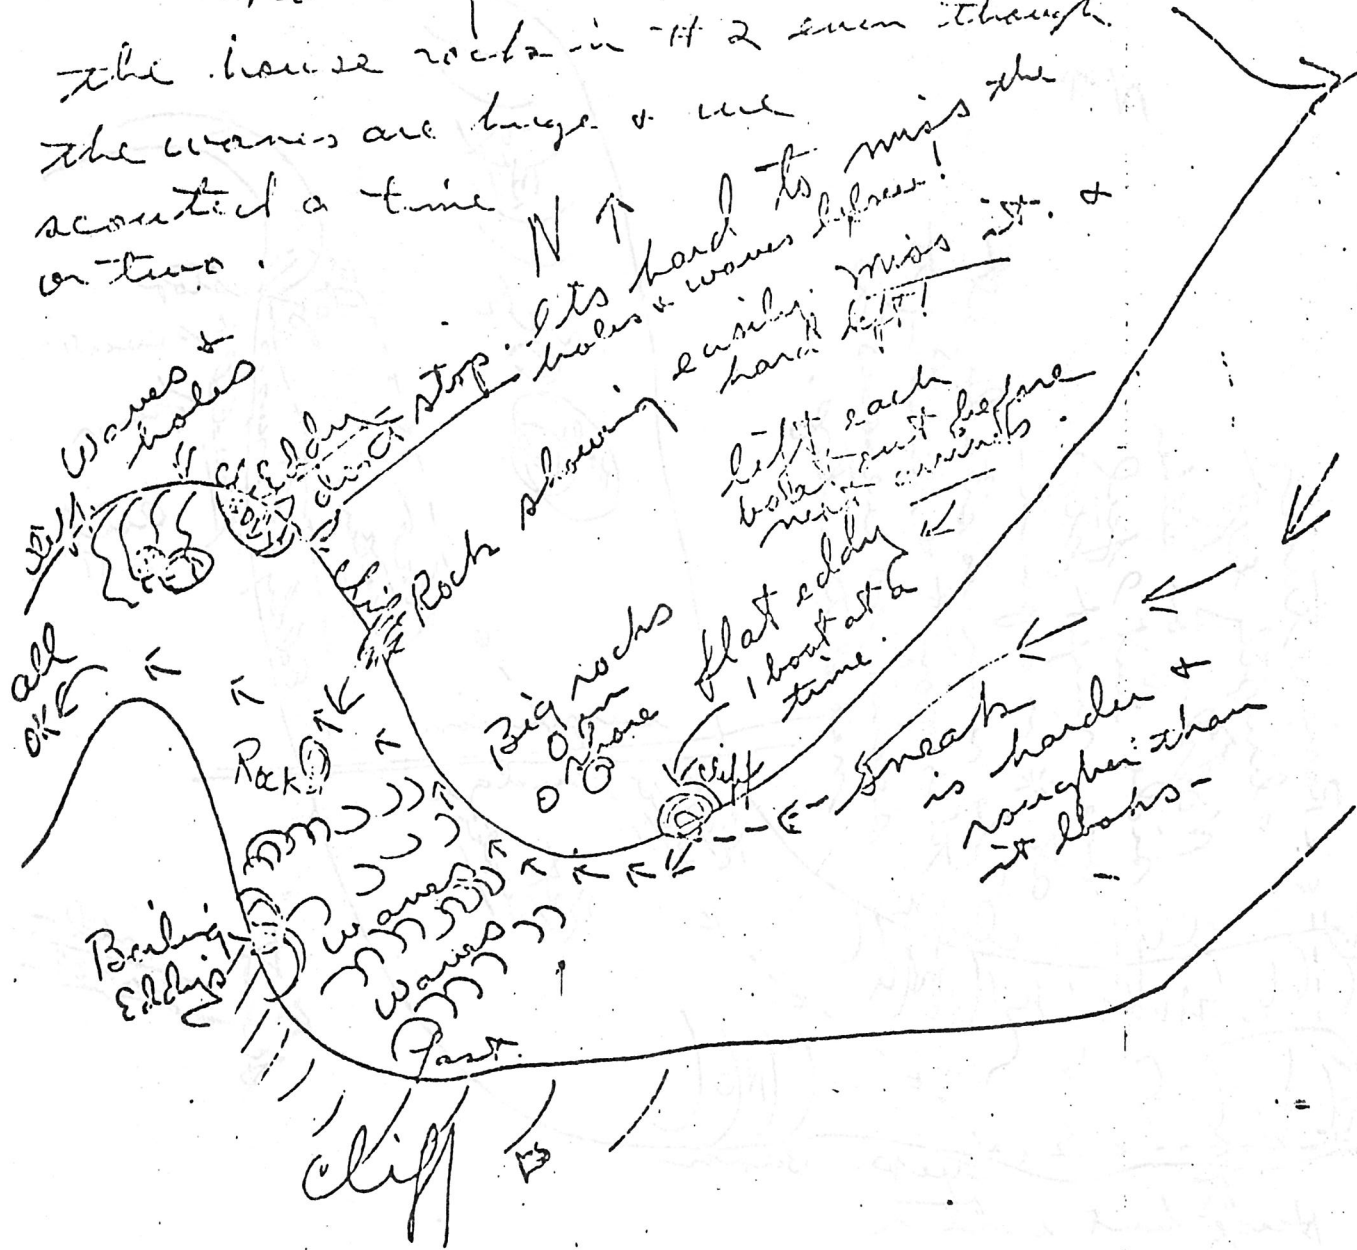 the house rocks in #2 even though
the waves are huge & we
scouted a time
or two.
N
Waves &
holes
Eddy & stop. Its hard to miss the
holes & waves before!
Rock showing easily. Miss it. &
hard left!
left each
boat out before
next arrives.
flat eddy
1 boat at a
time.
Big rocks
on
shore
cliff
Sneak
is harder &
rougher than
it looks-
all
OK
Rock
Waves
Waves
Boiling
Eddys
Fast.
Cliff